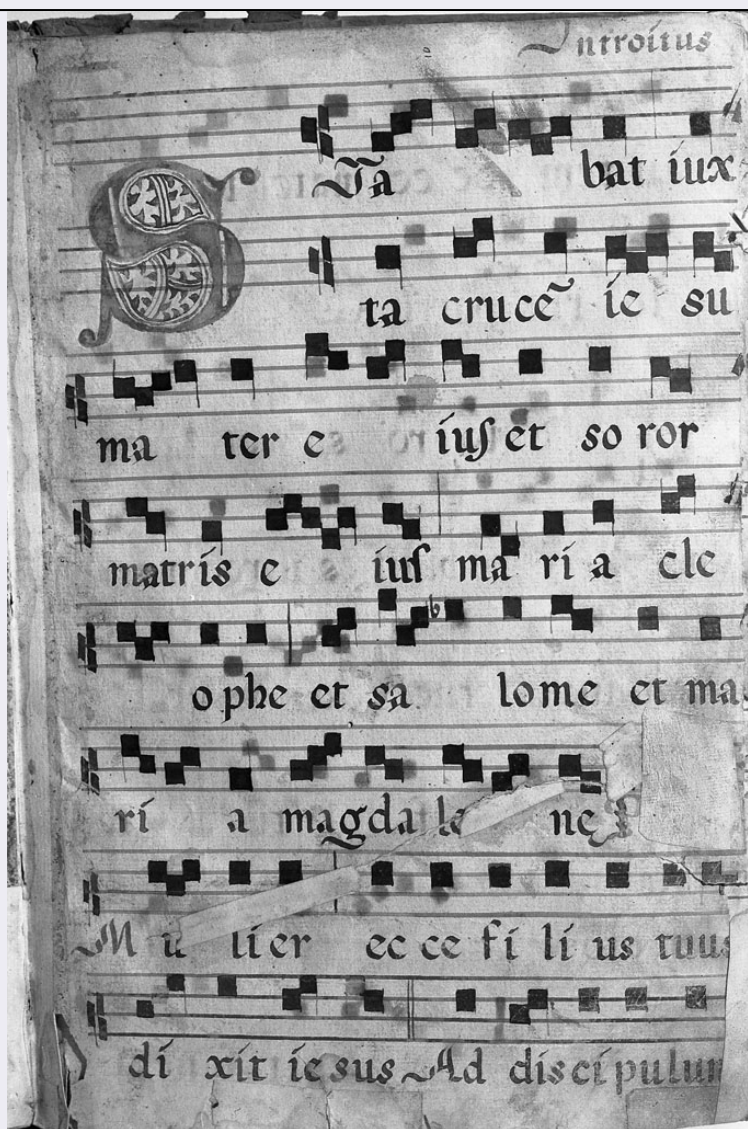 Introitus
STa bat iux
ta crucē ie su
ma ter e iuſ et so ror
matris e iuſ ma ri a cle
ophe et sa lome et ma
ri a magda le ne
Mu lier ec ce fi li us tuus
di xit ie sus Ad discipulum